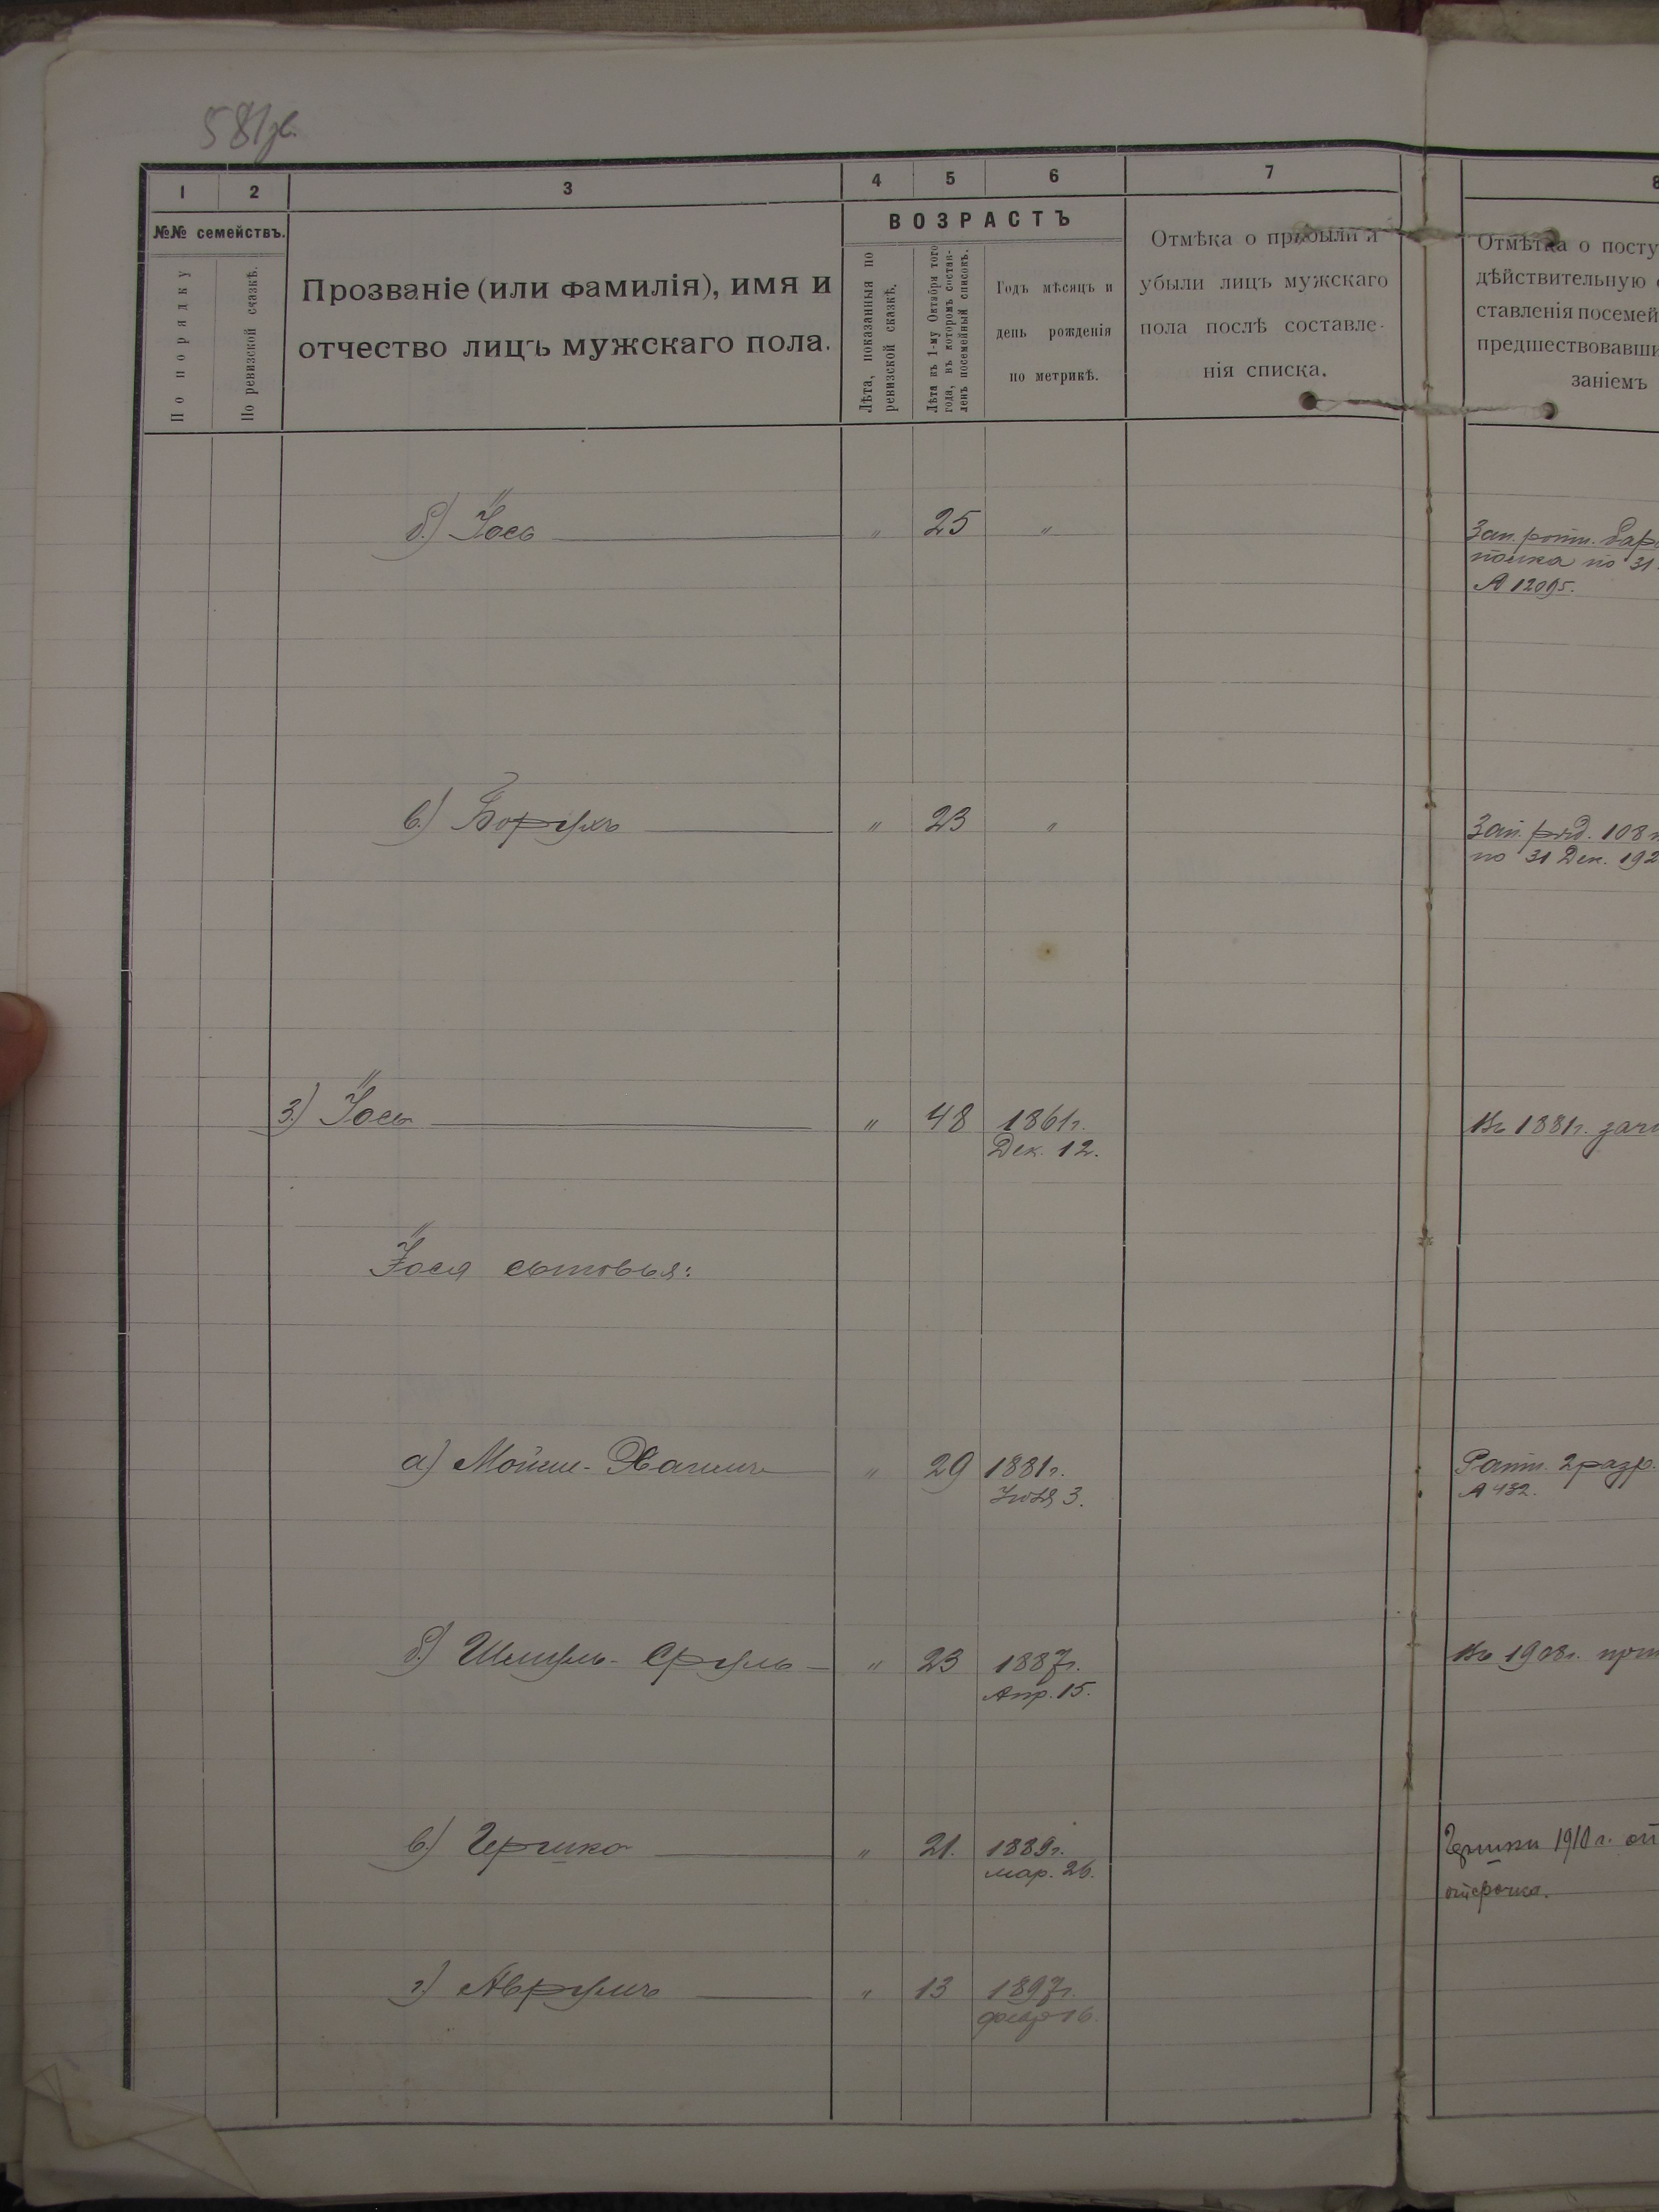 581
1 2 3 4 5 6 7 8
№№ семействъ.
По порядку
По ревизской сказкѣ.
Прозваніе (или фамилія), имя и
отчество лицъ мужскаго пола.
ВОЗРАСТЪ
Лѣта, показанныя по
ревизской сказкѣ.
Лѣта къ 1-му Октября того
года, въ которомъ состав-
ленъ посемейный списокъ.
Годъ мѣсяцъ и
день рожденія
по метрикѣ.
Отмѣка о прибыли и
убыли лицъ мужскаго
пола послѣ составле-
нія списка.
Отмѣтка о посту
дѣйствительную
ставленія посемей
предшествовавши
заніемъ
б.) Іось " 25 "
Зап.
полка по 31
А 12095.
в.) Борухъ " 23 "
Зап. ряд. 108
по 31 Дек. 192
3.) Іось " 48 1861г.
Дек. 12.
Въ 1881г. зачи
Іося сыновья:
а) Мойше-Хаимъ " 29 1881г.
3.
Ратн. 2 разр.
А 432.
б.) Шмуль-Сруль " 23 1887г.
Апр. 15.
Въ 1908г.
в.) Гершко " 21. 1889г.
мар. 26.
Гершки 1910 г.
отсрочка.
г.) Аврумъ " 13 1897г.
16.